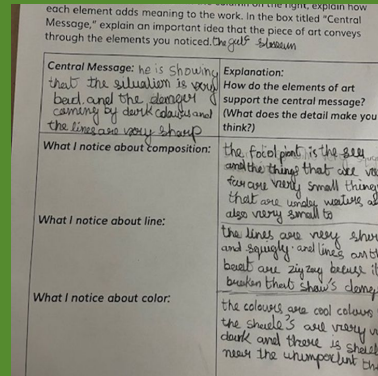 each element adds meaning to the work. In the box titled "Central
Message," explain an important idea that the piece of art conveys
through the elements you noticed. The gulf
Central Message: he is showing
that the situation is very
bad. and the danger
coming by dark colours and
the lines are very sharp
Explanation:
How do the elements of art
support the central message?
(What does the detail make you
think?)
What I notice about composition:
the is the
and the things that are
far are very small thing
that are under
also very small to
What I notice about line:
the lines are very
and squigly. and lines on th
are zig zag it
broken that
What I notice about color:
the colours are cool colours
the are very
dark and there is
near the